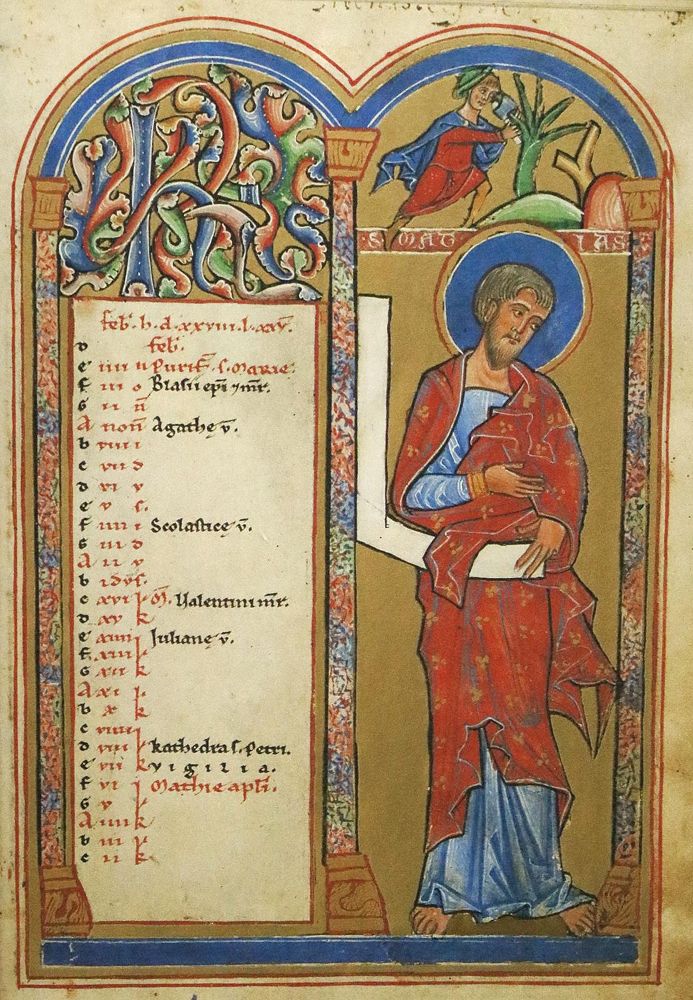 KL
S MATH IAS
feb. h. d. xxviii. l. xxx.
D feb.
e iiii n Purif. S. Marie.
f iii o Blasii epi 7 mr.
G ii n
A non Agathe v.
b viii i
c vii d
D vi v
e v s.
f iiii i Scolastice v.
G iii d
A ii v
b idus.
c xvi k Valentini mr.
D xv k
e xiiii k Juliane v.
f xiii k
G xii k
A xi k
b x k
c viiii k
D viii k kathedra S. Petri.
e vii k vigilia.
f vi k Mathie apli.
G v k
A iiii k
b iii k
c ii k